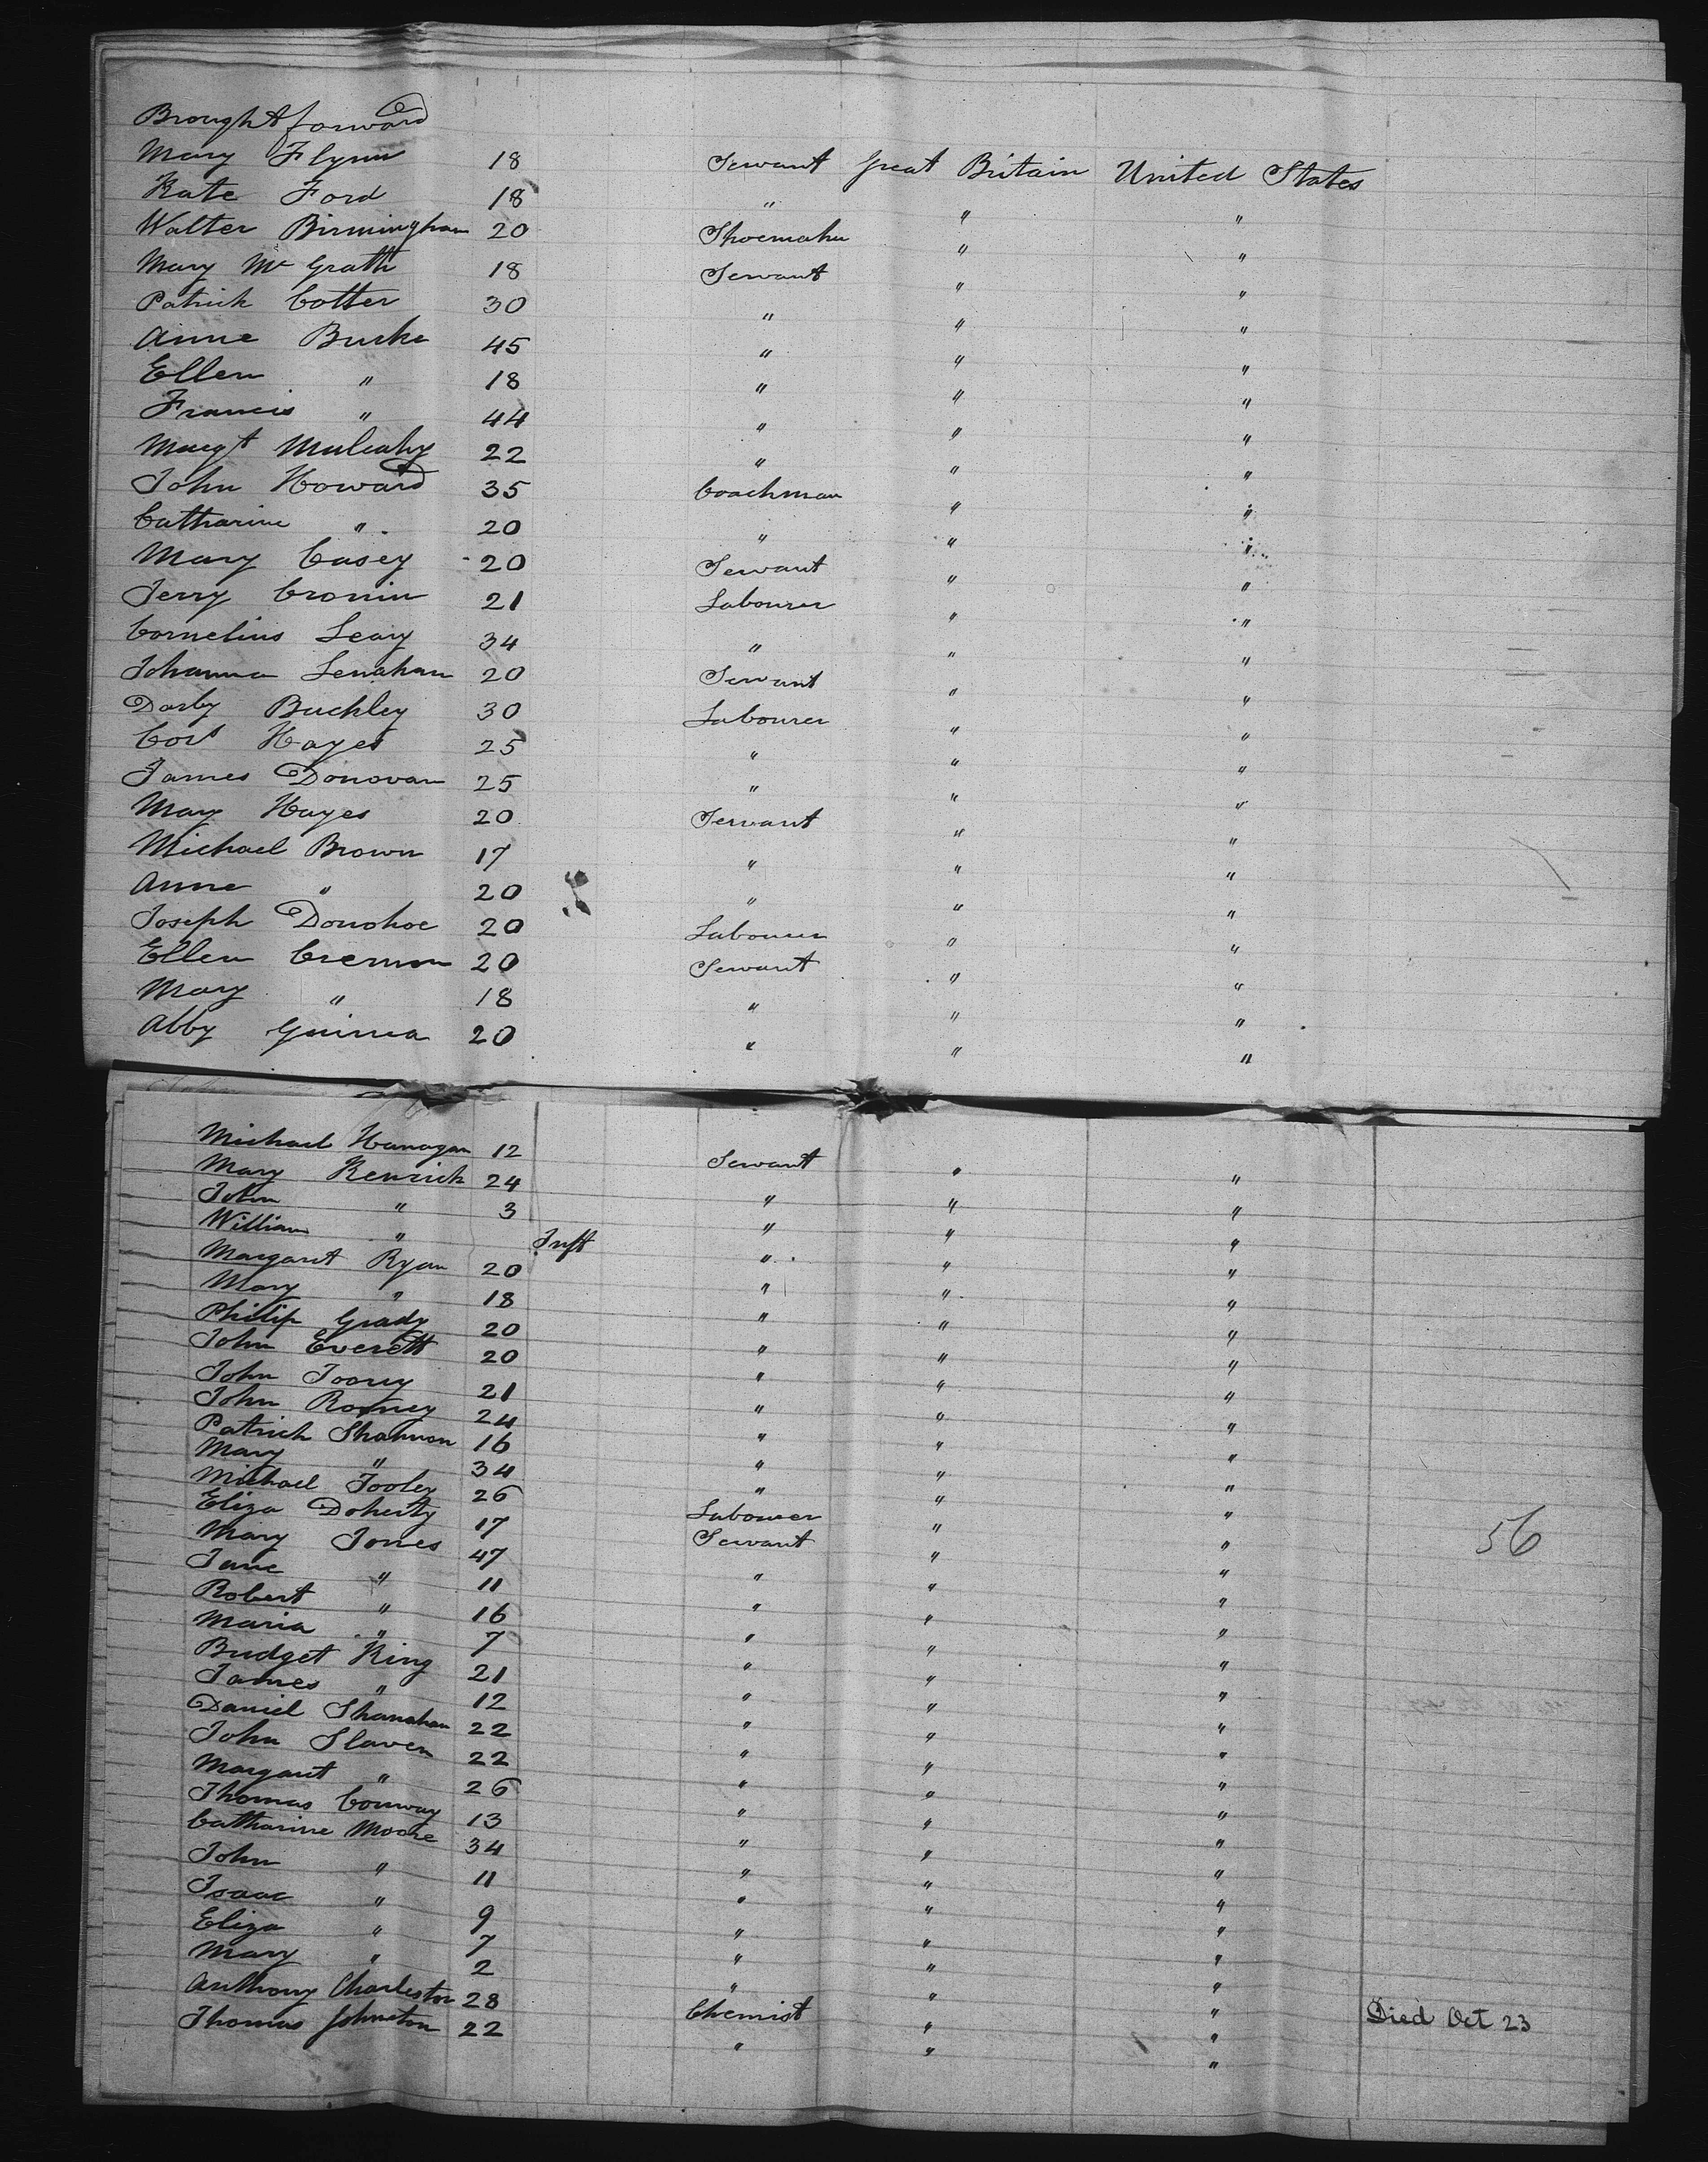 Brought forward
Mary Flynn 18 Servant Great Britain United States
Kate Ford 18 " " "
Walter Birmingham 20 Shoemaker " "
Mary Mc Grath 18 Servant " "
Patrick Cotter 30 " " "
Anne Burke 45 " " "
Ellen " 18 " " "
Francis " 44 " " "
Margt Mulcahy 22 " " "
John Howard 35 Coachman " "
Catharine " 20 " " "
Mary Casey 20 Servant " "
Jerry Cronin 21 Labourer " "
Cornelius Leary 34 " " "
Johanna Lenahan 20 Servant " "
Darby Buckley 30 Labourer " "
Cors Hayes 25 " " "
James Donovan 25 " " "
Mary Hayes 20 Servant " "
Michael Brown 17 " " "
Anne " 20 " " "
Joseph Donohoe 20 Labourer " "
Ellen 20 Servant " "
Mary " 18 " " "
Abby Guinea 20 " " "
Michael Hanagan 12 Servant " "
Mary Kenrick 24 " " "
John " 3 " " "
William " Inft " " "
Margaret Ryan 20 " " "
Mary " 18 " " "
Philip Grady 20 " " "
John Everett 20 " " "
John 21 " " "
John Rooney 24 " " "
Patrick Shannon 16 " " "
Mary " 34 " " "
Michael Tooley 26 Labourer " "
Eliza Doherty 17 Servant " " 56
Mary Jones 47 " " "
Jane " 11 " " "
Robert " 16 " " "
Maria " 7 " " "
Bridget King 21 " " "
James " 12 " " "
Daniel Shanahan 22 " " "
John Slaven 22 " " "
Margaret " 26 " " "
Thomas Conway 13 " " "
Catharine Moore 34 " " "
John " 11 " " "
Isaac " 9 " " "
Eliza " 7 " " "
Mary " 2 " " "
Anthony Charleston 28 Chemist " " Died Oct 23
Thomas Johnston 22 " " "